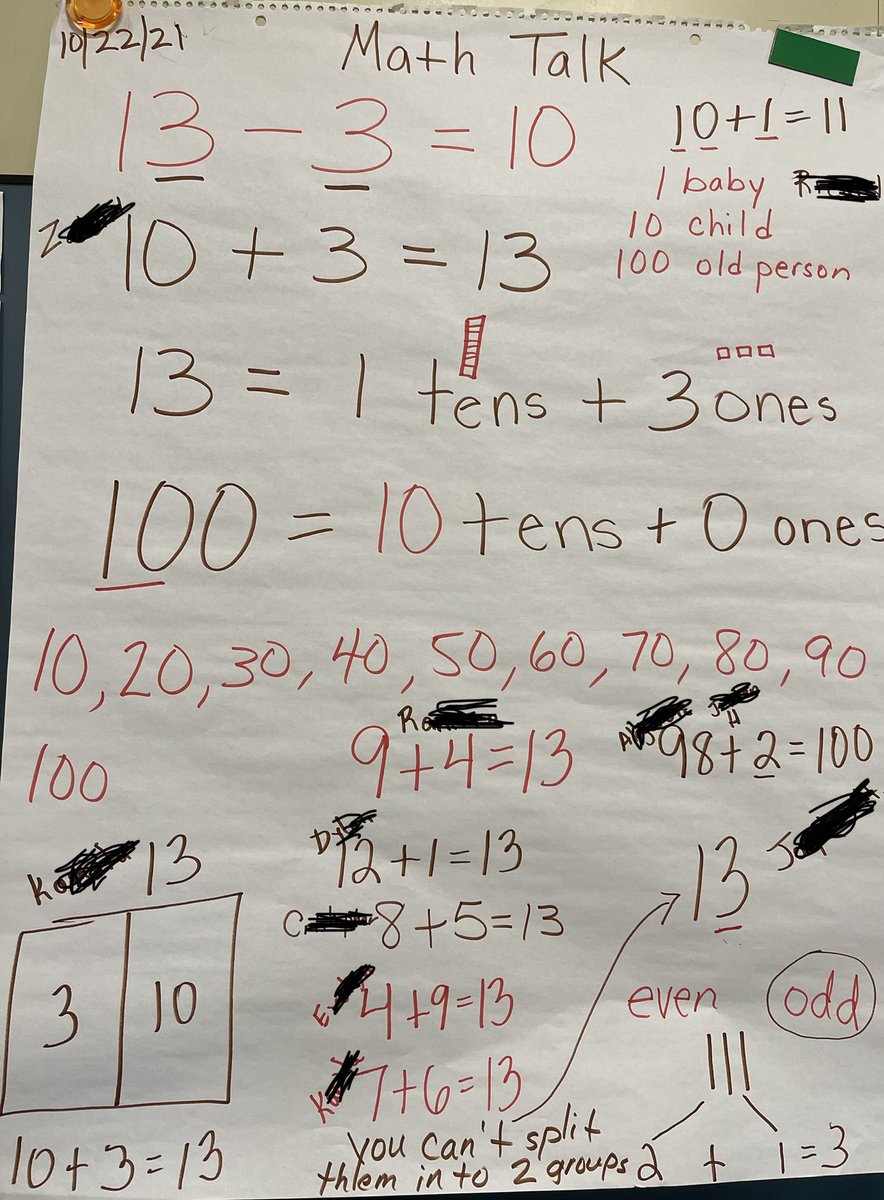 10/22/21
Math Talk
13 - 3 = 10
10 + 1 = 11
1 baby
10 child
100 old person
10 + 3 = 13
13 = 1 tens + 3 ones
100 = 10 tens + 0 ones
10, 20, 30, 40, 50, 60, 70, 80, 90
100
9 + 4 = 13
98 + 2 = 100
13
3 10
10 + 3 = 13
12 + 1 = 13
8 + 5 = 13
4 + 9 = 13
7 + 6 = 13
you can't split
thlem in to 2 groups
13
even odd
2 + 1 = 3